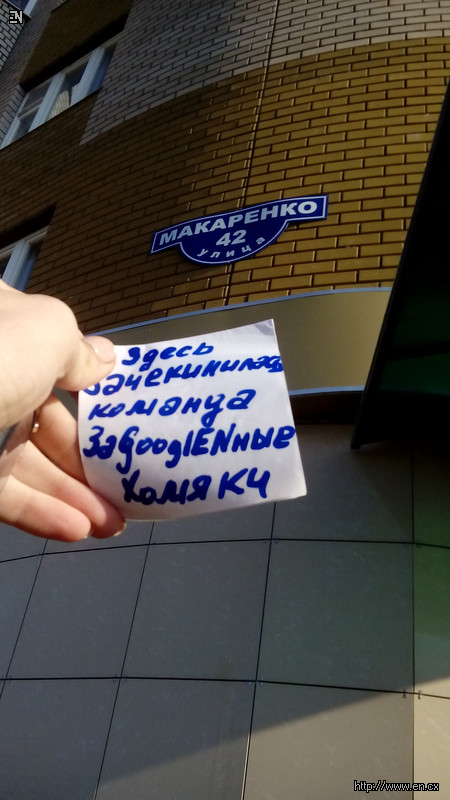 EN
МАКАРЕНКО
42
улица
Здесь
зачекинилась
команда
ЗаGooglENные
хомяки
http://www.en.cx